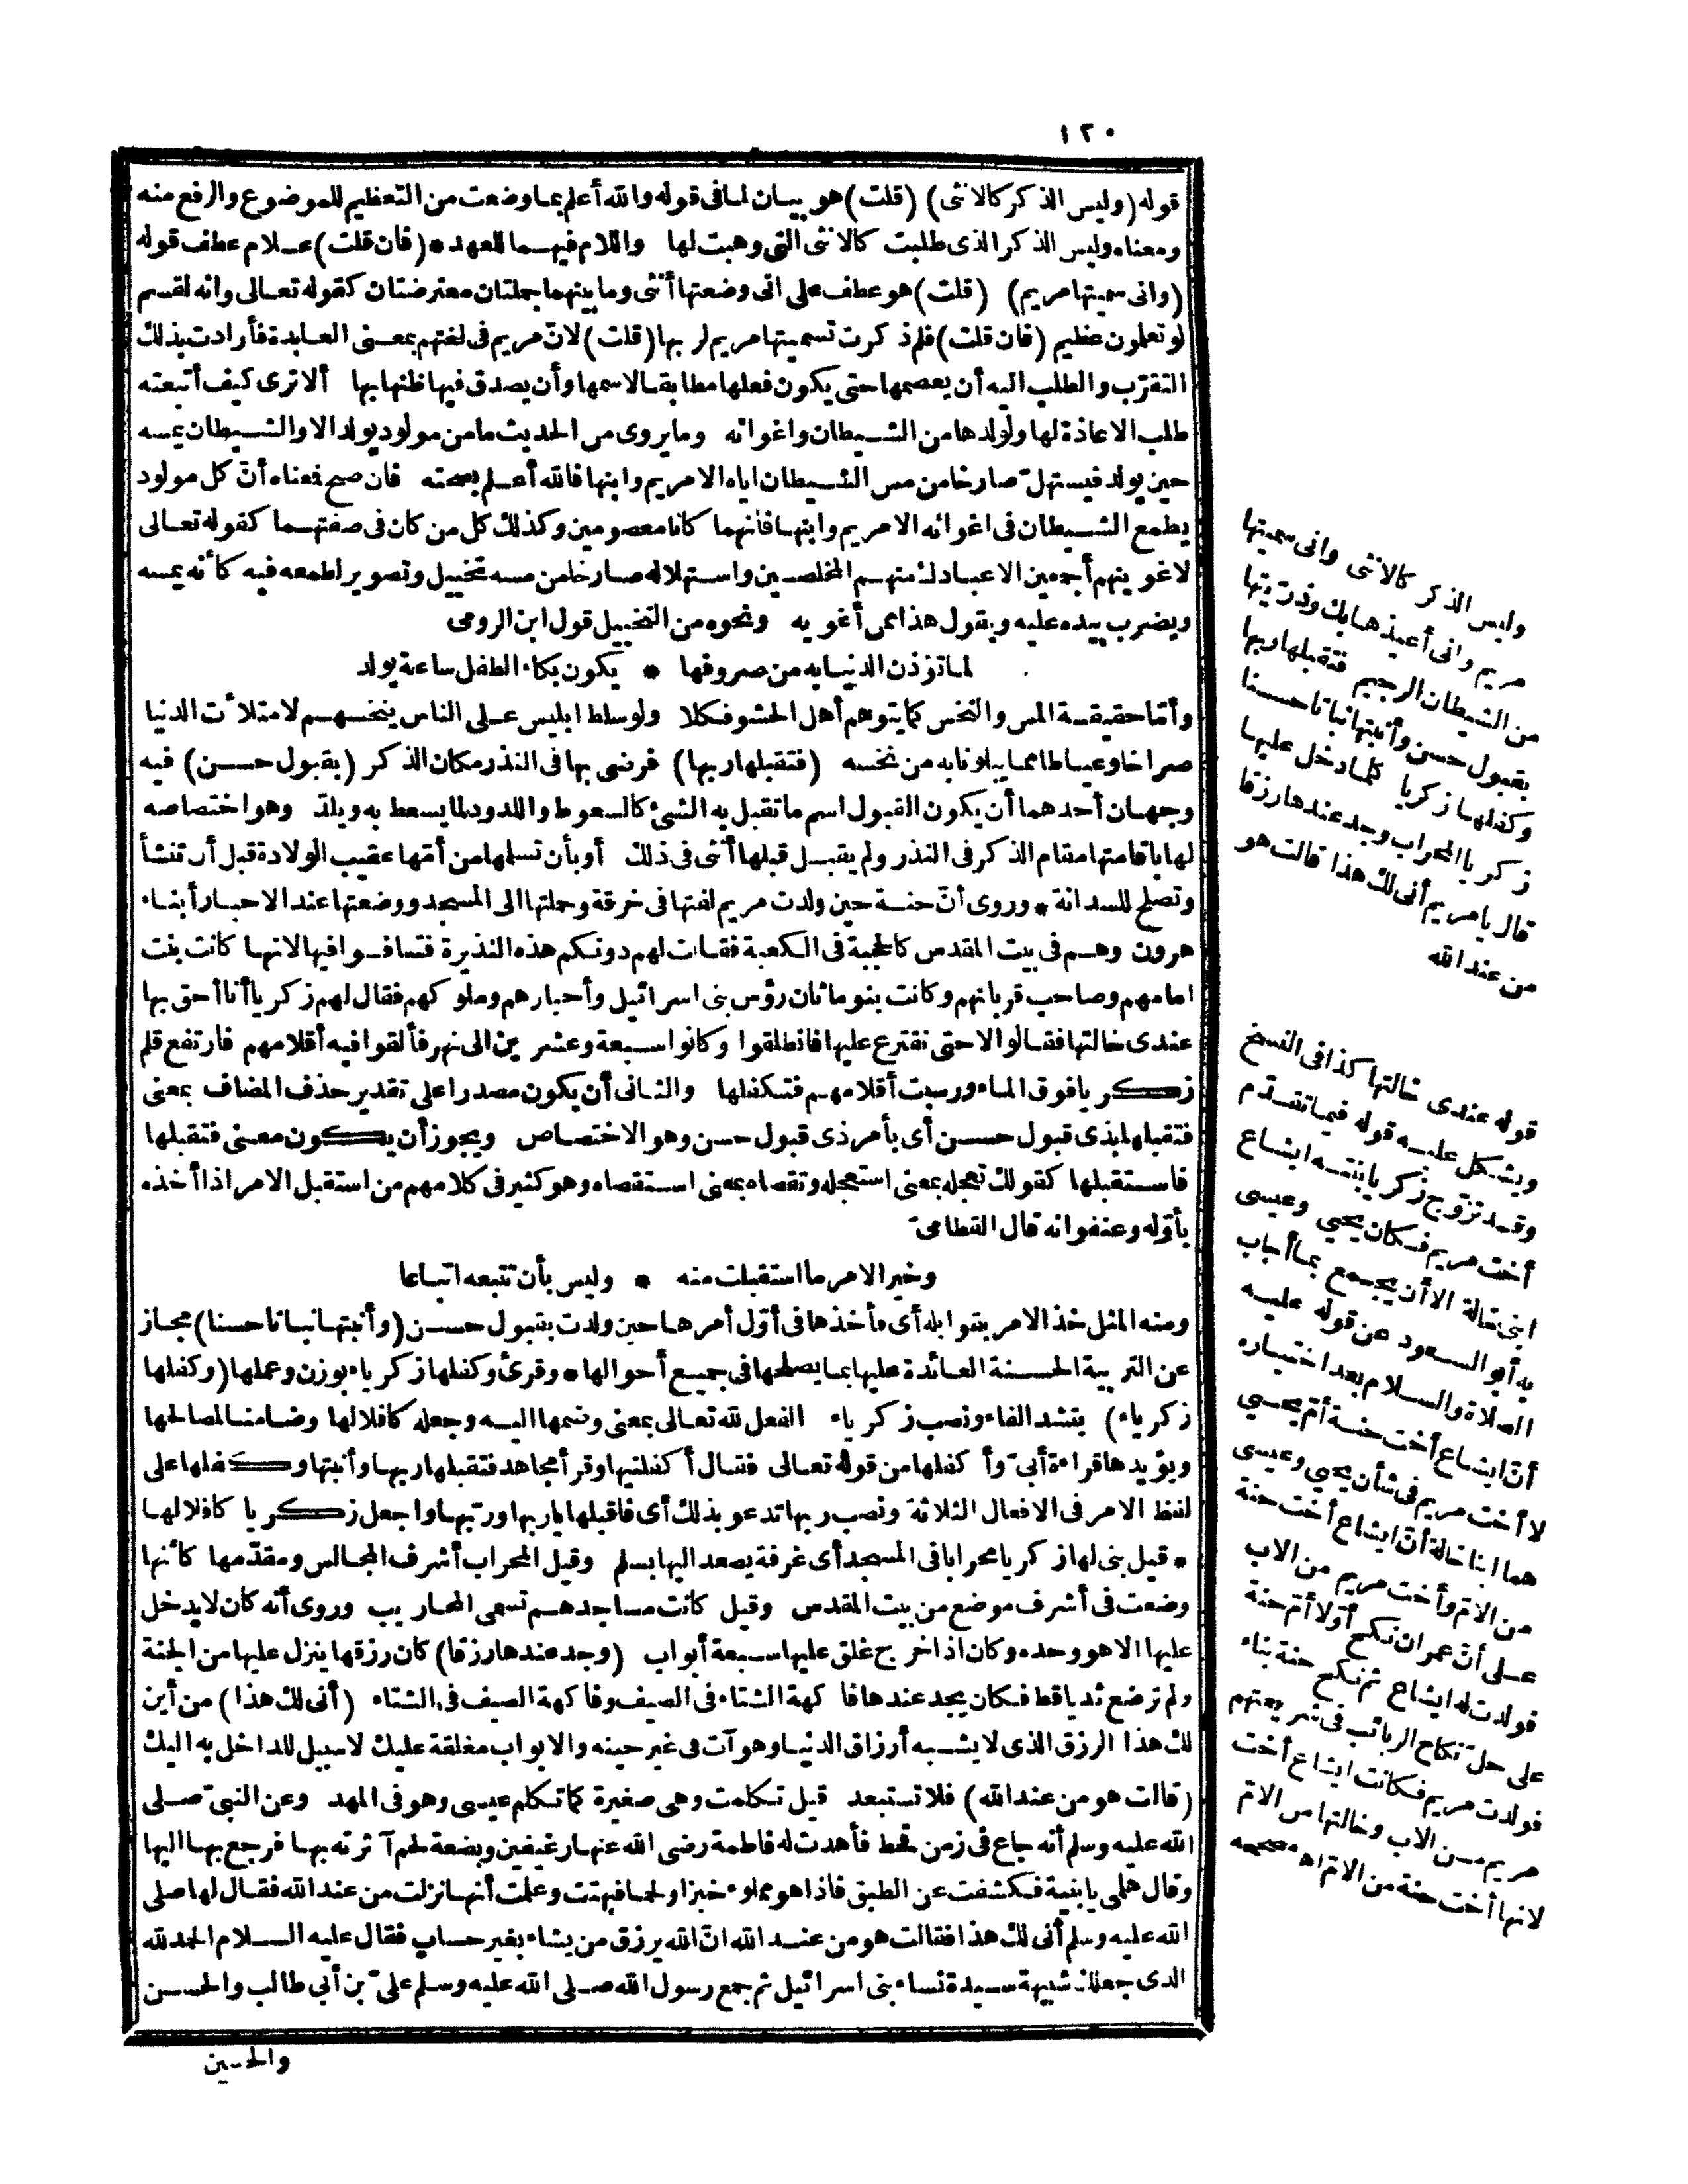 ١٢٠
قوله (وليس الذكر كالانثى) (قلت) هو بيان لما فى قوله والله أعلم بما وضعت من التعظيم للموضوع والرفع منه
ومعناه وليس الذكر الذى طلبت كالانثى التى وهبت لها واللام فيهما للعهد * (فان قلت) علام عطف قوله
(وانى سميتها مريم) (قلت) هو عطف على انى وضعتها أنثى وما بينهما جملتان معترضتان كقوله تعالى وانه لقسم
لو تعلمون عظيم (فان قلت) فلم ذكرت تسميتها مريم لربها (قلت) لانّ مريم فى لغتهم بمعنى العابدة فأرادت بذلك
التقرّب والطلب اليه أن يعصمها حتى يكون فعلها مطابقا لاسمها وأن يصدق فيها ظنها بها ألا ترى كيف أتبعته
طلب الاعاذة لها ولولدها من الشيطان واغوائه وما يروى من الحديث ما من مولود يولد الا والشيطان يمسه
حين يولد فيستهلّ صارخا من مس الشيطان اياه الا مريم وابنها فالله أعلم بصحته فان صح فعناه أنّ كل مولود
يطمع الشيطان فى اغوائه الا مريم وابنها فانهما كانا معصومين وكذلك كل من كان فى صفتهما كقوله تعالى
لاغوينهم أجمعين الا عبادك منهم المخلصين واستهلاله صارخا من مسه تخييل وتصوير لطمعه فيه كأنه يمسه
ويضرب بيده عليه ويقول هذا ممن أغويه ونحوه من التخييل قول ابن الرومى
لما تؤذن الدنيا به من صروفها * يكون بكاء الطفل ساعة يولد
وأمّا حقيقة المس والنخس كما يتوهم أهل الحشو فكلا ولو سلط ابليس على الناس ينخسهم لامتلأت الدنيا
صراخا وعياطا مما يبلونا به من نخسه (فتقبلها ربها) فرضى بها فى النذر مكان الذكر (بقبول حسن) فيه
وجهان أحدهما أن يكون القبول اسم ما تقبل به الشئ كالسعوط واللدود لما يسعط به ويلدّ وهو اختصاصه
لها باقامتها مقام الذكر فى النذر ولم يقبل قبلها أنثى فى ذلك أو بأن تسلمها من أمّها عقيب الولادة قبل أن تنشأ
وتصلح للسدانة * وروى أنّ حنة حين ولدت مريم لفتها فى خرقة وحملتها الى المسجد ووضعتها عند الاحبار أبناء
هرون وهم فى بيت المقدس كالحجبة فى الكعبة فقالت لهم دونكم هذه النذيرة فتنافسوا فيها لانها كانت بنت
امامهم وصاحب قربانهم وكانت بنو ماثان رؤس بنى اسرائيل وأحبارهم وملوكهم فقال لهم زكريا أنا أحق بها
عندى خالتها فقالوا لا حتى نقترع عليها فانطلقوا وكانوا سبعة وعشرين الى نهر فألقوا فيه أقلامهم فارتفع قلم
زكريا فوق الماء ورسبت أقلامهم فتكفلها والثانى أن يكون مصدرا على تقدير حذف المضاف بمعنى
فتقبلها بذى قبول حسن أى بأمر ذى قبول حسن وهو الاختصاص ويجوز أن يكون معنى فتقبلها
فاستقبلها كقولك تعجله بمعنى استعجله وتقصاه بمعنى استقصاه وهو كثير فى كلامهم من استقبل الامر اذا أخذه
بأوّله وعنفوانه قال القطامىّ
وخير الامر ما استقبلت منه * وليس بأن تتبعه اتباعا
ومنه المثل خذ الامر بقوابله أى فأخذها فى أوّل أمرها حين ولدت بقبول حسن (وأنبتها نباتا حسنا) مجاز
عن التربية الحسنة العائدة عليها بما يصلحها فى جميع أحوالها * وقرئ وكفلها زكرياء بوزن وعملها (وكفلها
زكرياء) بتشد الفاء ونصب زكرياء الفعل لله تعالى بمعنى وضمها اليه وجعله كافلا لها وضامنا لمصالحها
ويؤيدها قراءة أبىّ وأكفلها من قوله تعالى فقال أكفلنيها وقرأ مجاهد فتقبلها ربها وأنبتها وكفلها على
لفظ الامر فى الافعال الثلاثة ونصب ربها تدعو بذلك أى فاقبلها يا ربها وربها واجعل زكريا كافلا لها
* قيل بنى لها زكريا محرابا فى المسجد أى غرفة يصعد اليها بسلم وقيل المحراب أشرف المجالس ومقدّمها كأنها
وضعت فى أشرف موضع من بيت المقدس وقيل كانت مساجدهم تسمى المحاريب وروى أنه كان لا يدخل
عليها الا هو وحده وكان اذا خرج غلق عليها سبعة أبواب (وجد عندها رزقا) كان رزقها ينزل عليها من الجنة
ولم ترضع ثديا قط فكان يجد عندها فاكهة الشتاء فى الصيف وفاكهة الصيف فى الشتاء (أنى لك هذا) من أين
لك هذا الرزق الذى لا يشبه أرزاق الدنيا وهو آت فى غير حينه والابواب مغلقة عليك لا سبيل للداخل به اليك
(قالت هو من عند الله) فلا تستبعد قيل تكلمت وهى صغيرة كما تكلم عيسى وهو فى المهد وعن النبىّ صلى
الله عليه وسلم أنه جاع فى زمن قحط فأهدت له فاطمة رضى الله عنها رغيفين وبضعة لحم آثرته بها فرجع بها اليها
وقال هلمى يا بنية فكشفت عن الطبق فاذا هو مملوء خبزا ولحما فبهتت وعلمت أنها نزلت من عند الله فقال لها صلى
الله عليه وسلم أنى لك هذا فقالت هو من عند الله انّ الله يرزق من يشاء بغير حساب فقال عليه السلام الحمد لله
الذى جعلك شبيهة سيدة نساء بنى اسرائيل ثم جمع رسول الله صلى الله عليه وسلم علىّ بن أبي طالب والحسن
والحسين
وليس الذكر كالانثى وانى سميتها
مريم وانى أعيذها بك وذرّيتها
من الشيطان الرجيم فتقبلها ربها
بقبول حسن وأنبتها نباتا حسنا
وكفلها زكريا كلما دخل عليها
زكريا المحراب وجد عندها رزقا
قال يا مريم أنى لك هذا قالت هو
من عند الله
قوله عندى خالتها كذا فى النسخ
ويشكل عليه قوله فيما تقدم
وقد تزوّج زكريا بنته ايشاع
أخت مريم فكان يحيى وعيسى
ابنى خالة الا أن يجمع بما أجاب
به أبو السعود عن قوله عليه
الصلاة والسلام بعد اختياره
أنّ ايشاع أخت حنة أمّ يحيى
لا أخت مريم فى شأن يحيى وعيسى
هما ابنا خالة أنّ ايشاع أخت حنة
من الامّ وأخت مريم من الاب
على أنّ عمران نكح أوّلا أمّ حنة
فولدت له ايشاع ثم نكح حنة بناء
على حلّ نكاح الربائب فى شريعتهم
فولدت مريم فكانت ايشاع أخت
مريم من الاب وخالتها من الامّ
لانها أخت حنة من الامّ اه مصححه